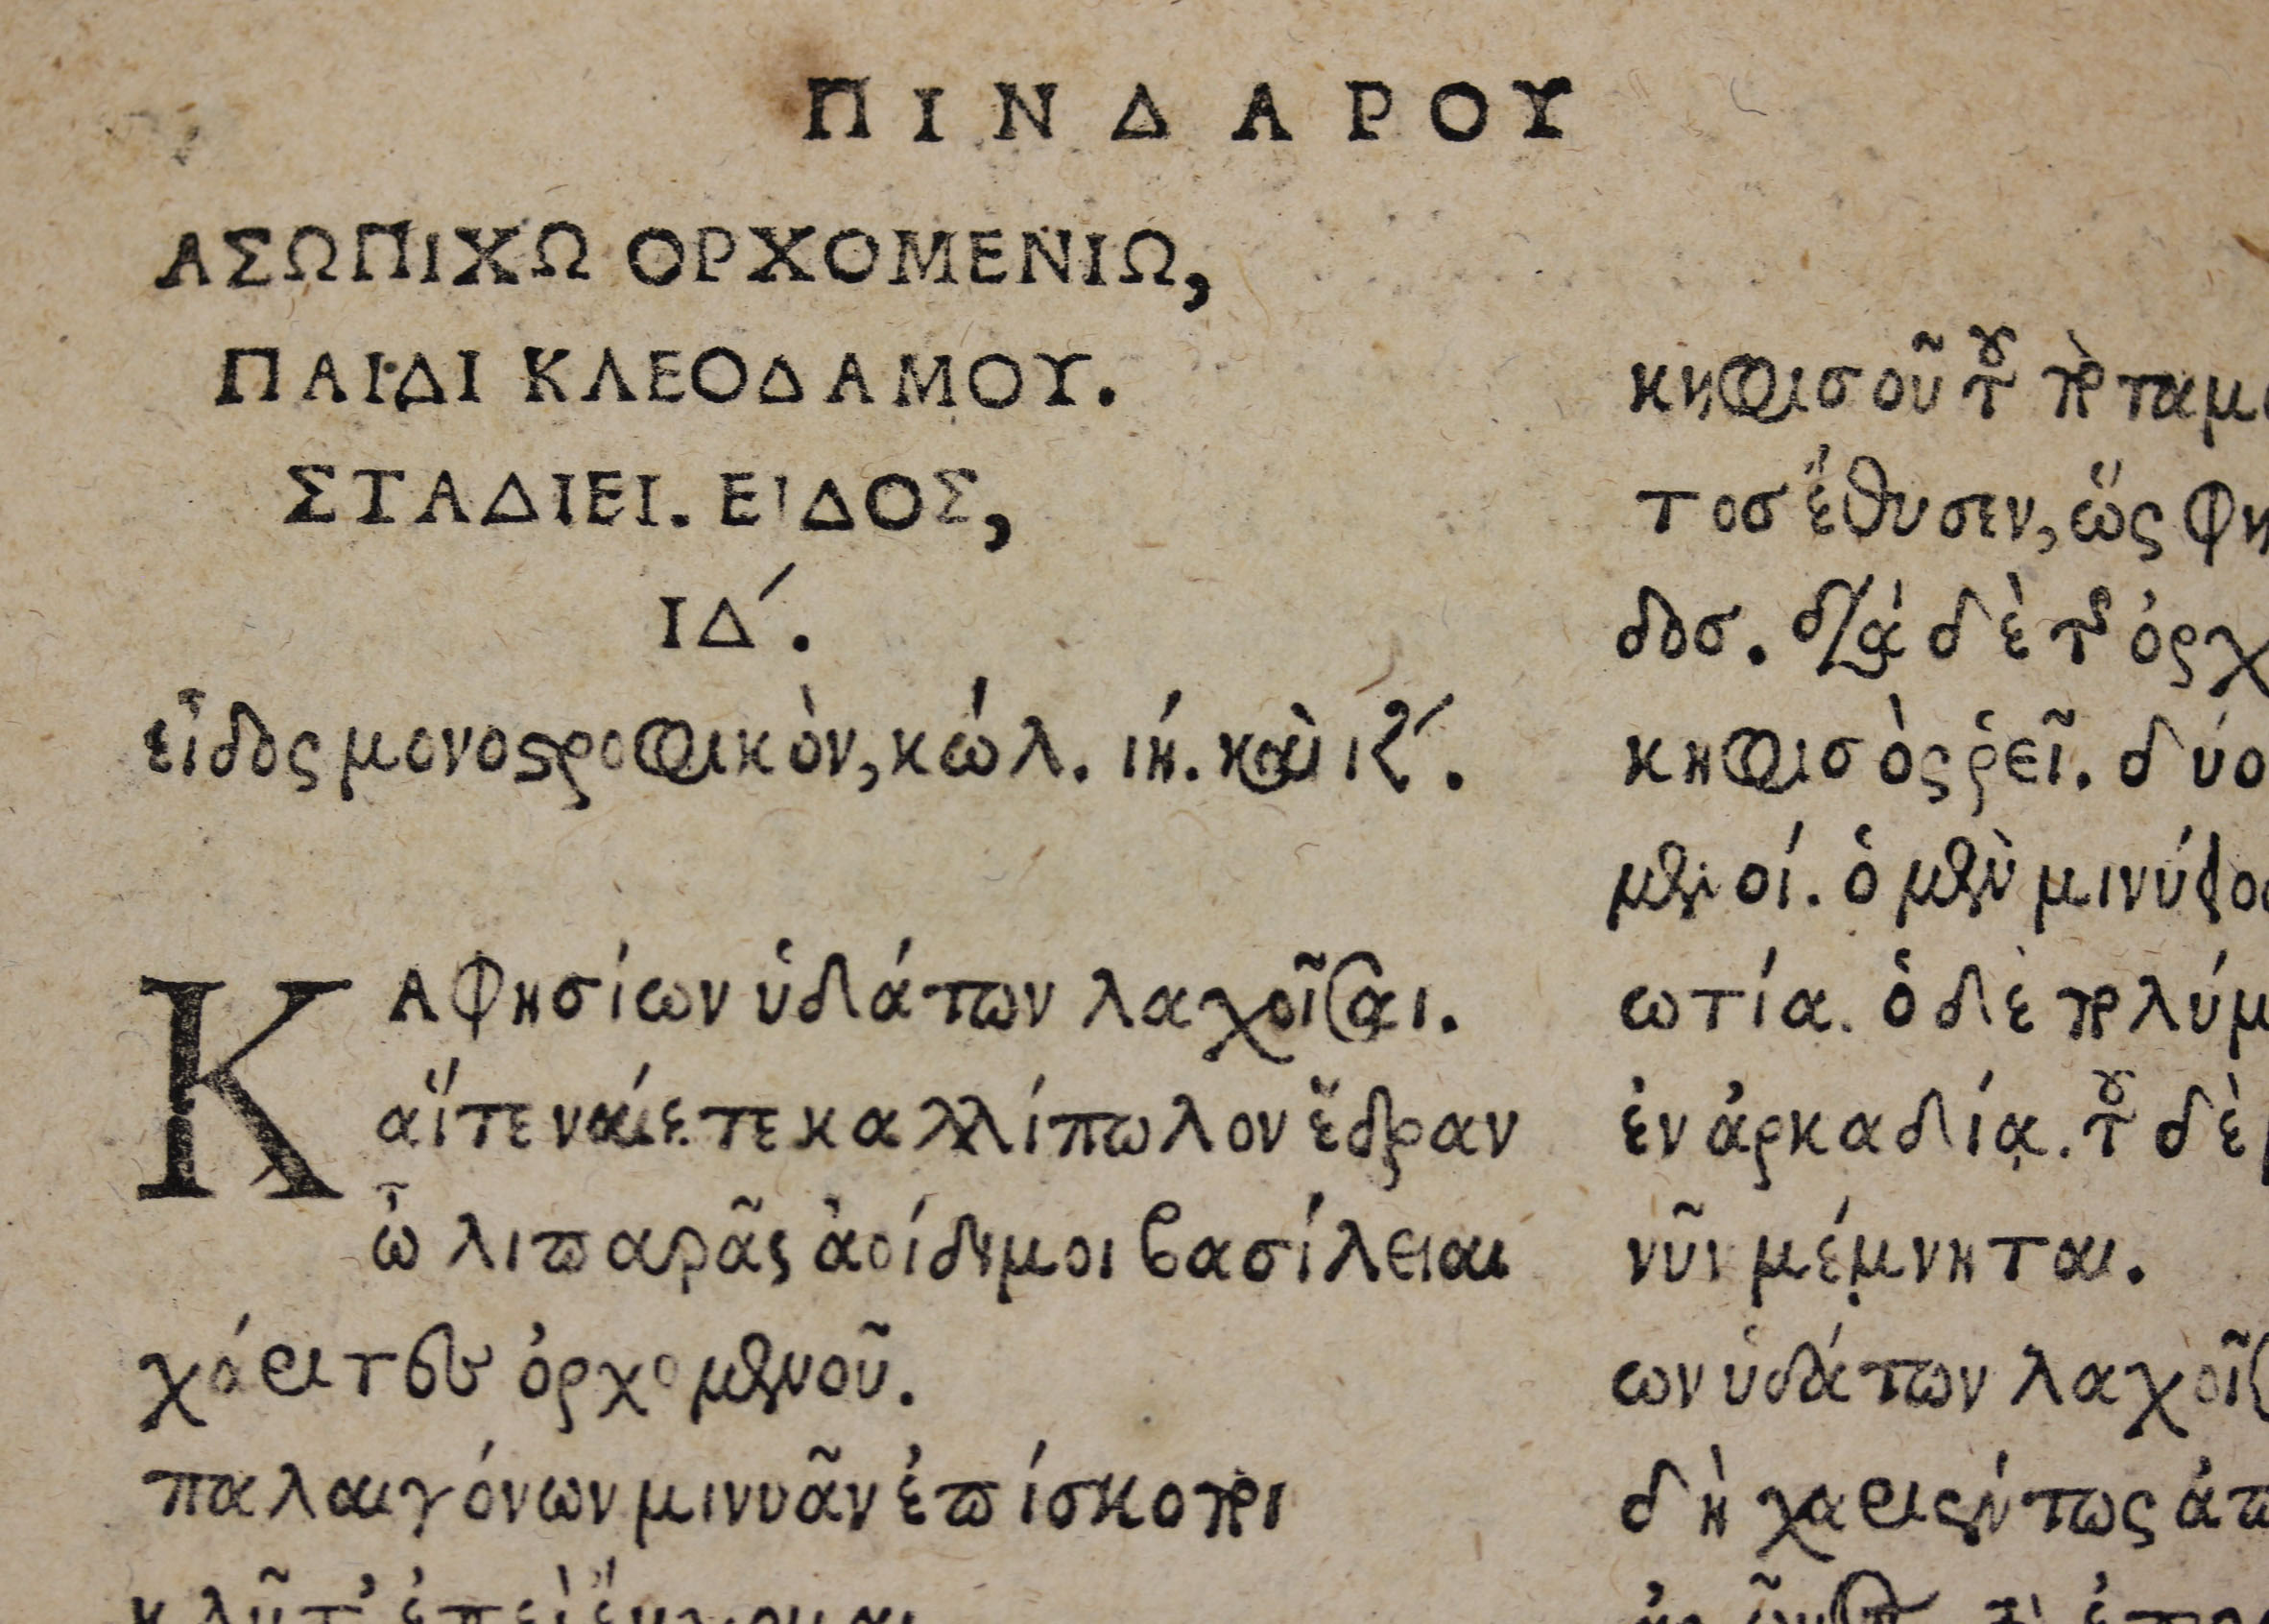 ΠΙΝΔΑΡΟΥ
ΑΣΩΠΙΧΩ ΟΡΧΟΜΕΝΙΩ,
ΠΑΙΔΙ ΚΛΕΟΔΑΜΟΥ.
ΣΤΑΔΙΕΙ. ΕΙΔΟΣ,
ΙΔ΄.
εἶδος μονοςροφικὸν, κώλ. ιή. καὶ ιζ΄.
ΚΑφησίων ὑδάτων λαχοῖσαι.
αἵτε ναίετε καλλίπωλον ἕδραν
ὦ λιπαρᾶς ἀοίδιμοι βασίλειαι
χάριτες ὀρχομενοῦ.
παλαιγόνων μινυᾶν ἐπίσκοποι
κλῦτ' ἐπεὶ εὔχομαι
κηφισοῦ τοῦ ποταμ
τοσ ἔθυσεν, ὥς φη
δοσ. διὰ δὲ τῆς ὀρχ
κηφισὸς ῥεῖ. δύο
μενοί. ὁ μὲν μινύειος
ωτία. ὁ δὲ πολύμ
ἐν ἀρκαδίᾳ. τοῦ δὲ
νῦν μέμνηται.
ων ὑδάτων λαχοῖσ
δὴ χαριέντως ἀπ